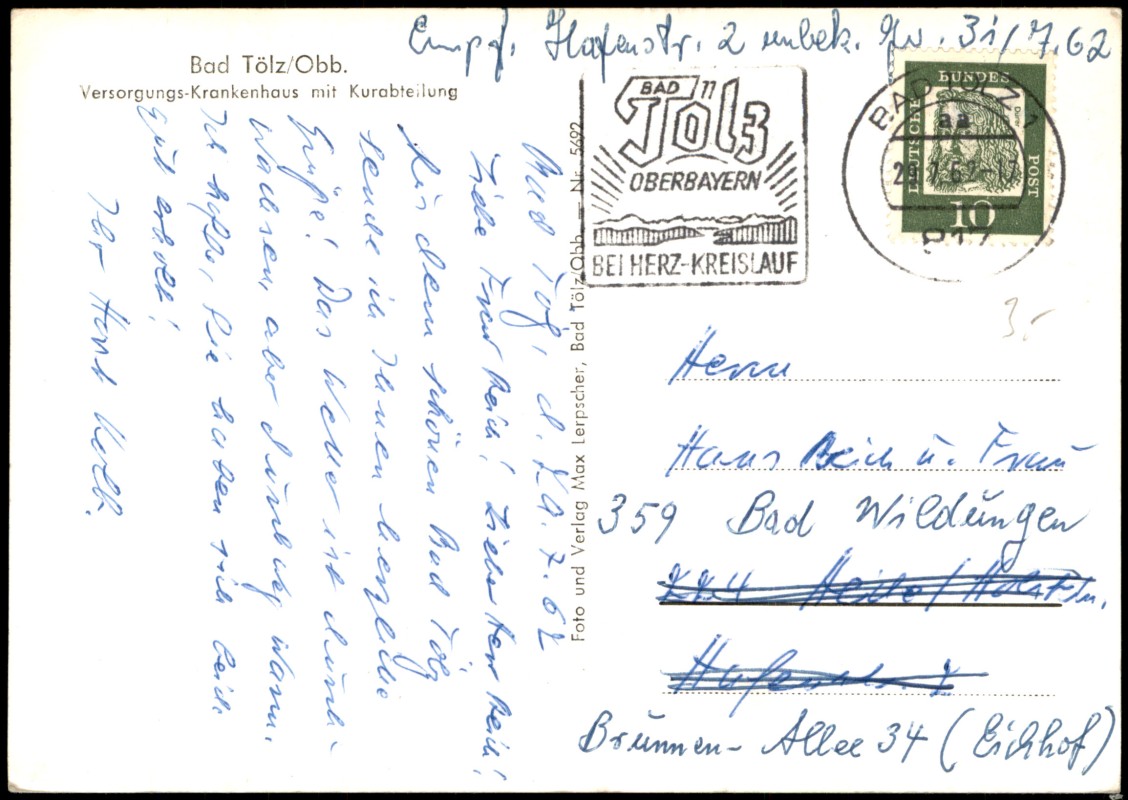 Empf. Hafenstr. 2 unbek. 31/7.62
Bad Tölz/Obb.
Versorgungs-Krankenhaus mit Kurabteilung
Bad Tölz, d. 7.62
Liebe Frau Reich! Lieber Herr Reich!
Aus dem schönen Bad Tölz
sende ich Ihnen herzliche
Grüße! Das Wetter ist durch-
wachsen, aber durchweg warm.
Ich hoffe, Sie haben sich beide
gut erholt!
Ihr Horst
Foto und Verlag Max Lerpscher, Bad Tölz/Obb. — Nr. 5692
BAD
Tölz
OBERBAYERN
BEI HERZ-KREISLAUF
BAD TÖLZ 1
aa
29.7.62-17
DEUTSCHE
BUNDES
POST
Dürer
10
3,-
Herrn
Hans Reich u. Frau
359 Bad Wildungen
224 Heide/Holstein.
Hafenstr. 2
Brunnen-Allee 34 (Eichhof)